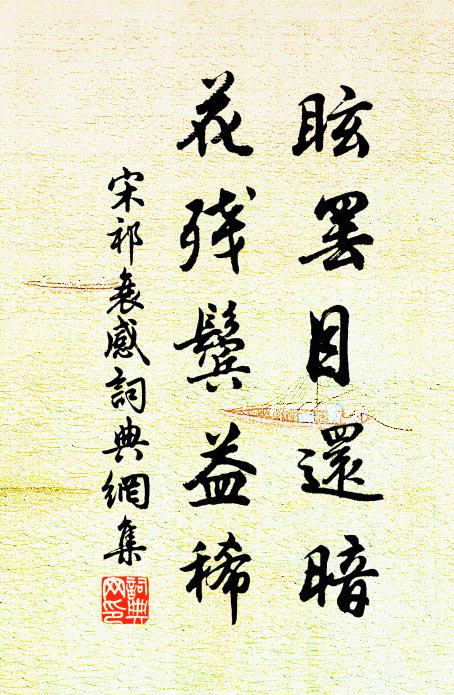 眩罢目還暗
花残鬓益稀
宋祁衰感詞典網集
詞典网印